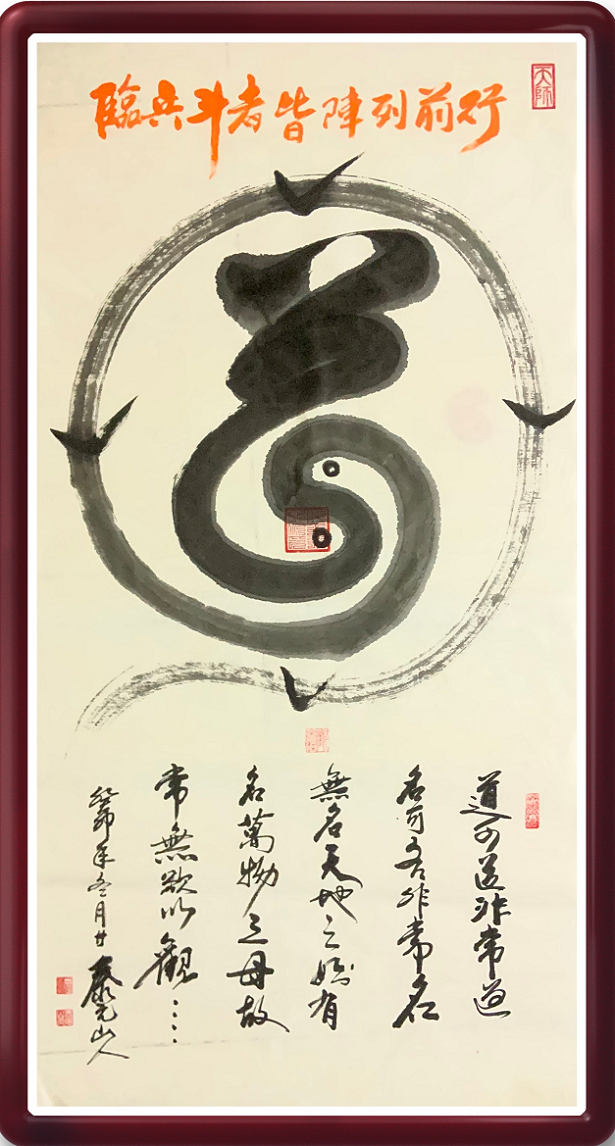 臨兵斗者皆陣列前行
天師
道
道可道非常道
名可名非常名
無名天地之始有
名萬物之母故
常無欲以觀……
癸卯年冬月廿
山人